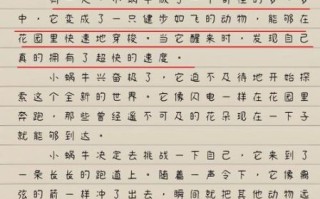 中，它变成了一只健步如飞的动物，能够在
花园里快速地穿梭。当它醒来时，发现自己
真的拥有了超快的速度。
小蜗牛兴奋极了，它迫不及待地开始探
索这个全新的世界。它像闪电一样在花园里
奔跑，那些曾经遥不可及的花朵现在一下子
就能够到达。
小蜗牛决定去挑战一下自己，它来到了
一条长长的跑道上。随着一声令下，它像离
弦的箭一样冲了出去，瞬间就把其他动物远